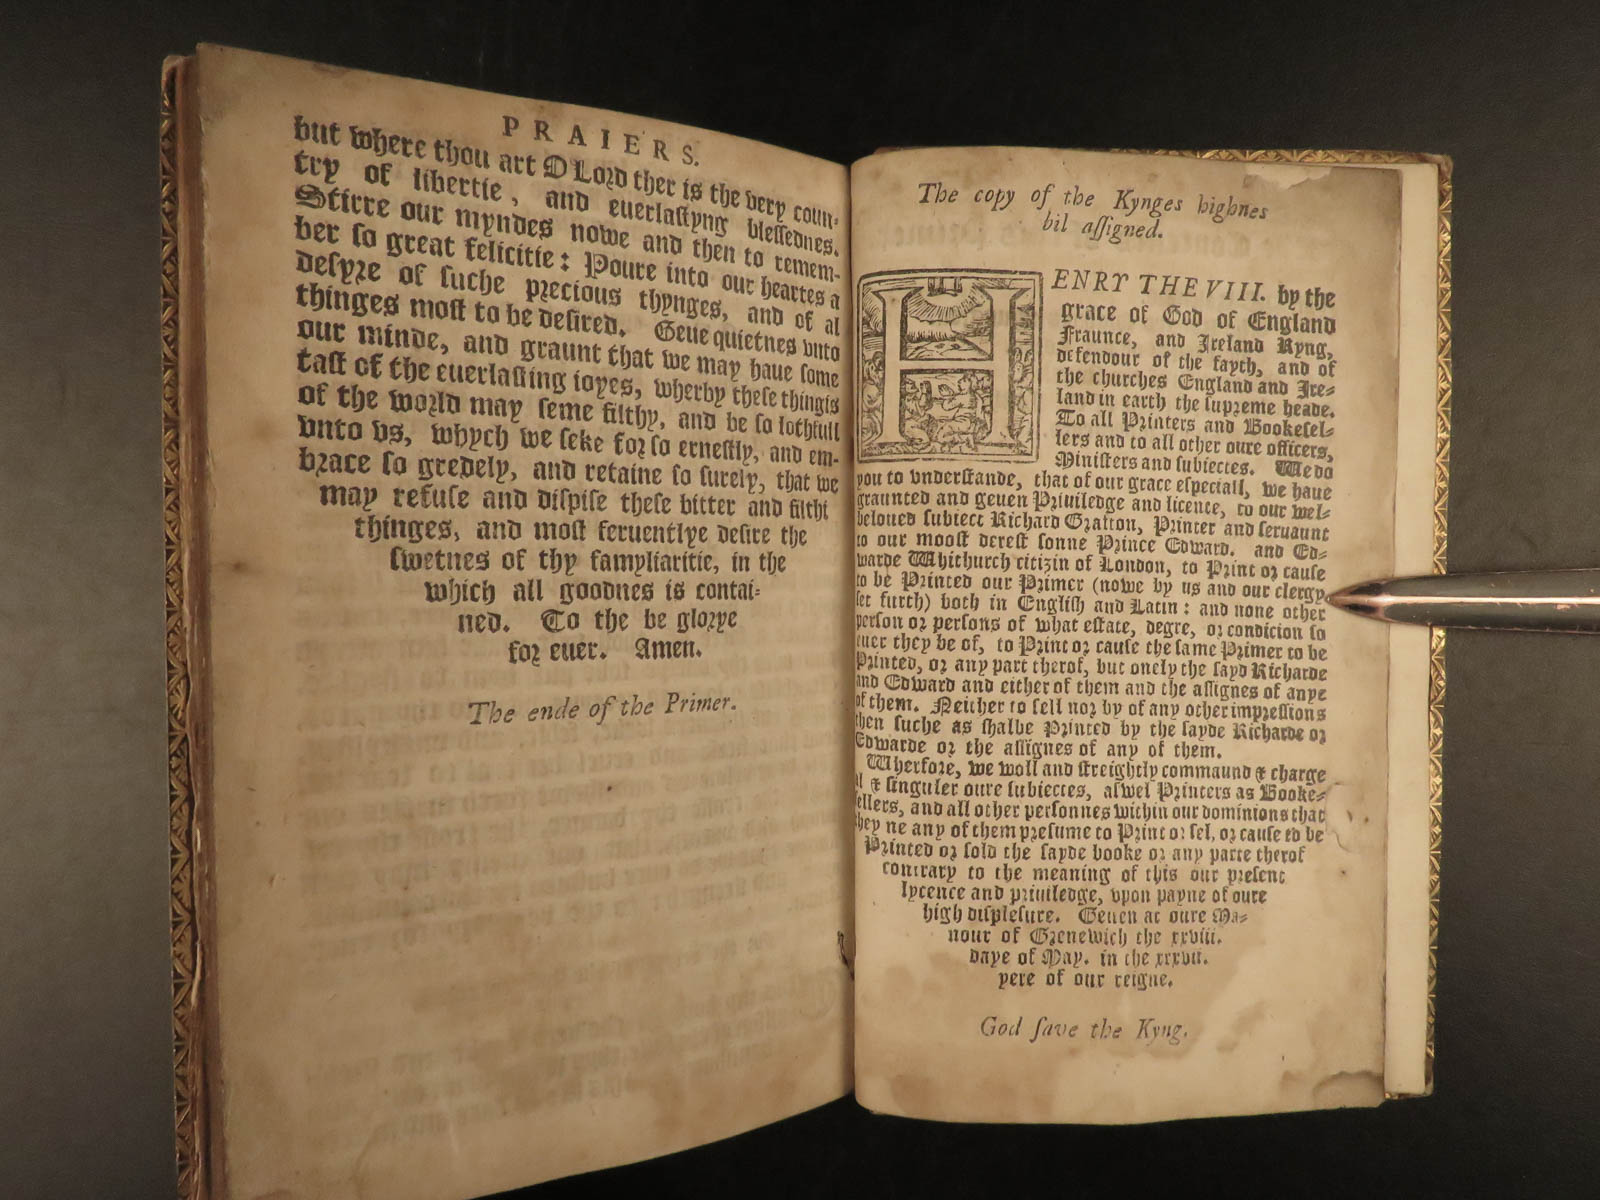 PRAIERS.
but where thou art O Lord ther is the very coun-
try of libertie, and euerlastyng blessednes.
Stirre our myndes nowe and then to remem-
ber so great felicitie: Poure into our heartes a
desyre of suche precious thynges, and of al
thinges most to be desired. Geue quietnes vnto
our minde, and graunt that we may haue some
tast of the euerlasting ioyes, wherby these thingis
of the world may seme filthy, and be so lothfull
vnto vs, whych we seke for so ernestly, and em-
brace so gredely, and retaine so surely, that we
may refuse and dispise these bitter and filthi
thinges, and most feruentlye desire the
swetnes of thy famyliaritie, in the
which all goodnes is contai-
ned. To the be glorye
for euer. Amen.
The ende of the Primer.
The copy of the Kynges highnes
bil assigned.
HENRY THE VIII. by the
grace of God of England
Fraunce, and Ireland Kyng,
defendour of the fayth, and of
the churches England and Ire-
land in earth the supreme heade.
To all Printers and Bookesel-
lers and to all other oure officers,
Ministers and subiectes. We do
you to vnderstande, that of our grace especiall, we haue
graunted and geuen Priuiledge and licence, to our wel-
beloued subiect Richard Grafton, Printer and seruaunt
to our moost derest sonne Prince Edward. and Ed-
warde Whithurch citizin of London, to Print or cause
to be Printed our Primer (nowe by us and our clergy
set furth) both in English and Latin: and none other
person or persons of what estate, degre, or condicion so
euer they be of, to Print or cause the same Primer to be
Printed, or any part therof, but onely the sayd Richarde
and Edward and either of them and the assignes of anye
of them. Neither to sell nor by of any other impressions
then suche as shalbe Printed by the sayde Richarde or
Edwarde or the assignes of any of them.
Wherfore, we woll and streightly commaund & charge
al & singuler oure subiectes, aswel Printers as Booke-
sellers, and all other personnes within our dominions that
they ne any of them presume to Print or sel, or cause to be
Printed or sold the sayde booke or any parte therof
contrary to the meaning of this our present
lycence and priuiledge, vpon payne of oure
high displesure. Geuen at oure Ma-
nour of Grenewich the xxviii.
daye of May. in the xxxvii.
yere of our reigne.
God save the Kyng.